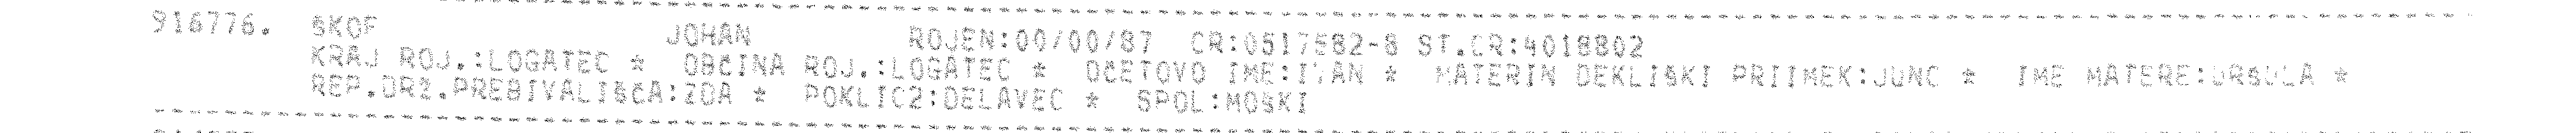 916776. ŠKOF JOHAN ROJEN:00/00/87 CR:0517582-8 ST.CR:4018802
KRAJ ROJ.:LOGATEC * OBČINA ROJ.:LOGATEC * OČETOVO IME:IVAN * MATERIN DEKLIŠKI PRIIMEK:JUNC * IME MATERE:URSULA *
REP.DRŽ.PREBIVALIŠČA:ZDA * POKLIC2:DELAVEC * SPOL:MOŠKI